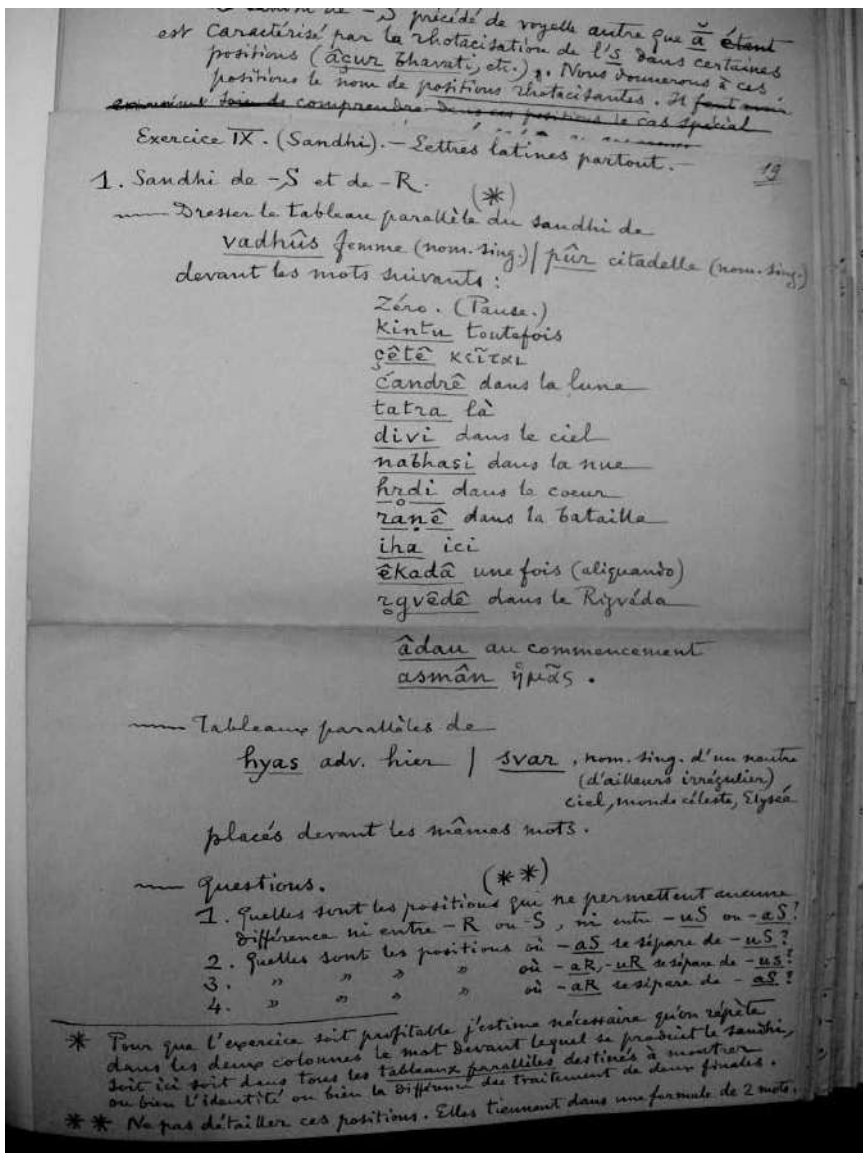 de -S précédé de voyelle autre que ā̆ étant
est caractérisé par la rhotacisation de l's dans certaines
positions (âçur bhavati, etc.). Nous donnerons à ces
positions le nom de positions rhotacisantes. Il faut
comprendre dans ces positions le cas spécial
Exercice IX. (Sandhi). — Lettres latines partout. —
19
1. Sandhi de -S et de -R. (*)
— Dresser le tableau parallèle du sandhi de
vadhûs femme (nom. sing.) | pûr citadelle (nom. sing.)
devant les mots suivants :
Zéro. (Pause.)
kintu toutefois
çêtê κεῖται
c'andrê dans la lune
tatra là
divi dans le ciel
nabhasi dans la nue
hr̥di dans le coeur
raṇê dans la bataille
iha ici
êkadâ une fois (aliquando)
r̥gvêdê dans le Rigvéda
âdau au commencement
asmân ἡμᾶς .
— Tableaux parallèles de
hyas adv. hier | svar , nom. sing. d'un neutre
(d'ailleurs irrégulier)
ciel, monde céleste, Elysée
placés devant les mêmes mots.
— Questions. (**)
1. Quelles sont les positions qui ne permettent aucune
différence ni entre -R ou -S, ni entre -uS ou -aS?
2. Quelles sont les positions où -aS se sépare de -uS?
3. " " " " où -aR, -uR se sépare de -uS?
4. " " " " où -aR se sépare de -aS?
* Pour que l'exercice soit profitable j'estime nécessaire qu'on répète
dans les deux colonnes le mot devant lequel se produit le sandhi,
soit ici soit dans tous les tableaux parallèles destinés à montrer
ou bien l'identité ou bien la différence des traitement de deux finales.
** Ne pas détailler ces positions. Elles tiennent dans une formule de 2 mots.